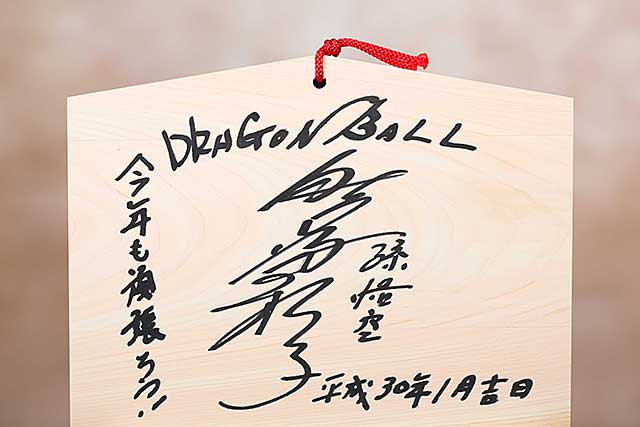 DRAGON BALL
孫悟空
野沢雅子
今年も頑張ろう!!
平成30年1月吉日